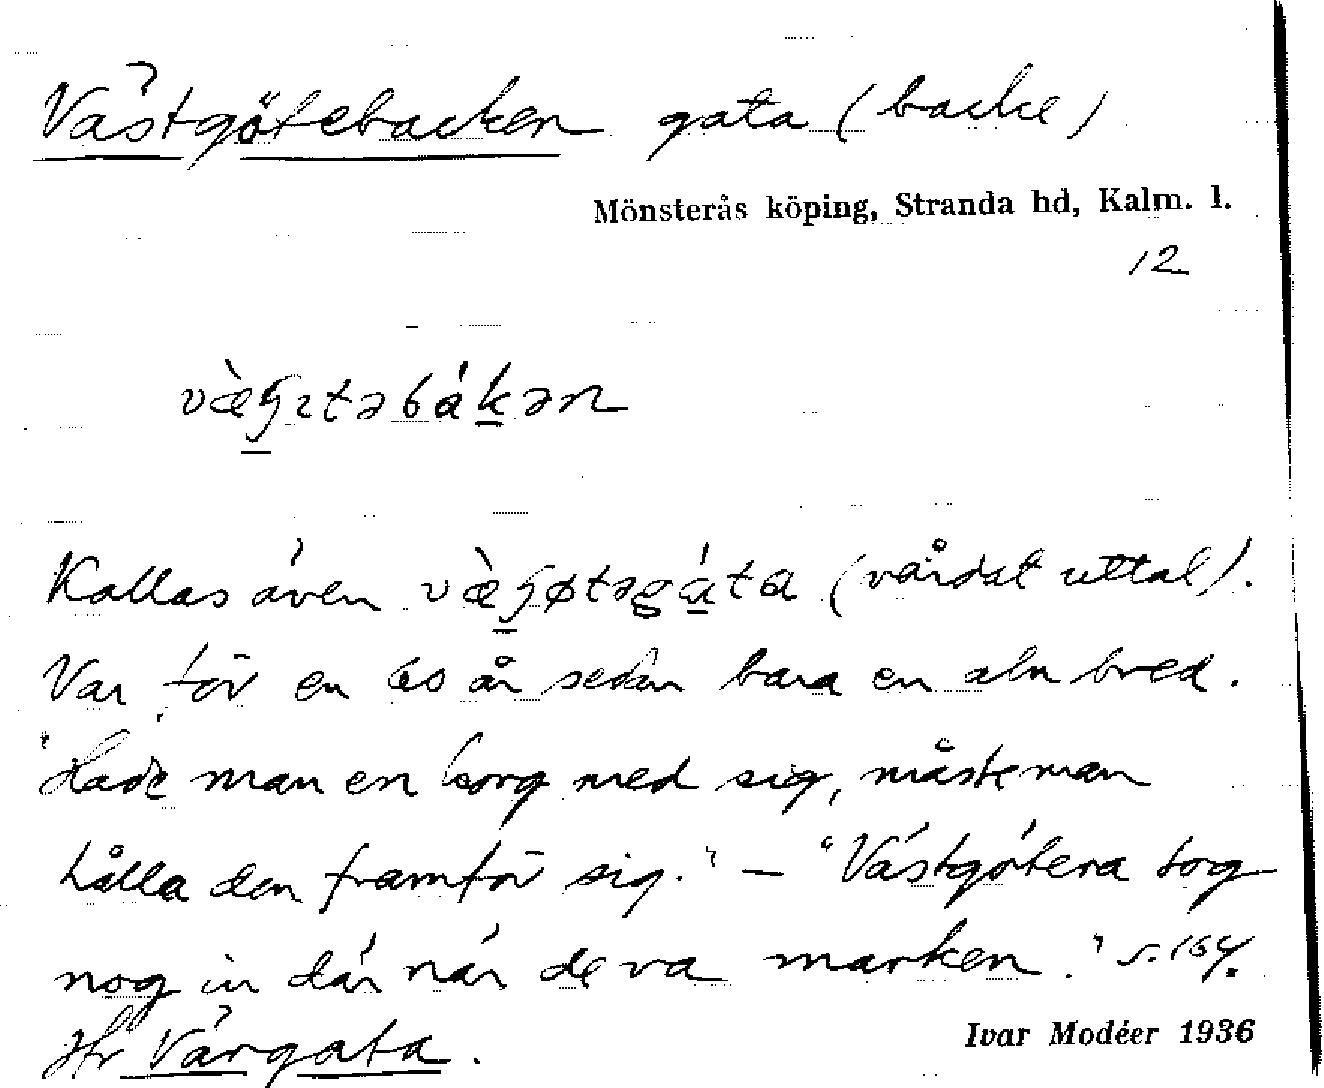 Västgötebacken gata (backe)
Mönsterås köping, Stranda hd, Kalm. l.
12
Kallas även (vårdat uttal).
Var för en 60 år sedan bara en aln bred.
"Hade man en korg med sig, måste man
hålla den framför sig." – "Västgötera tog
nog in där när de va marken." s. 164.
Jfr Vårgata.
Ivar Modéer 1936